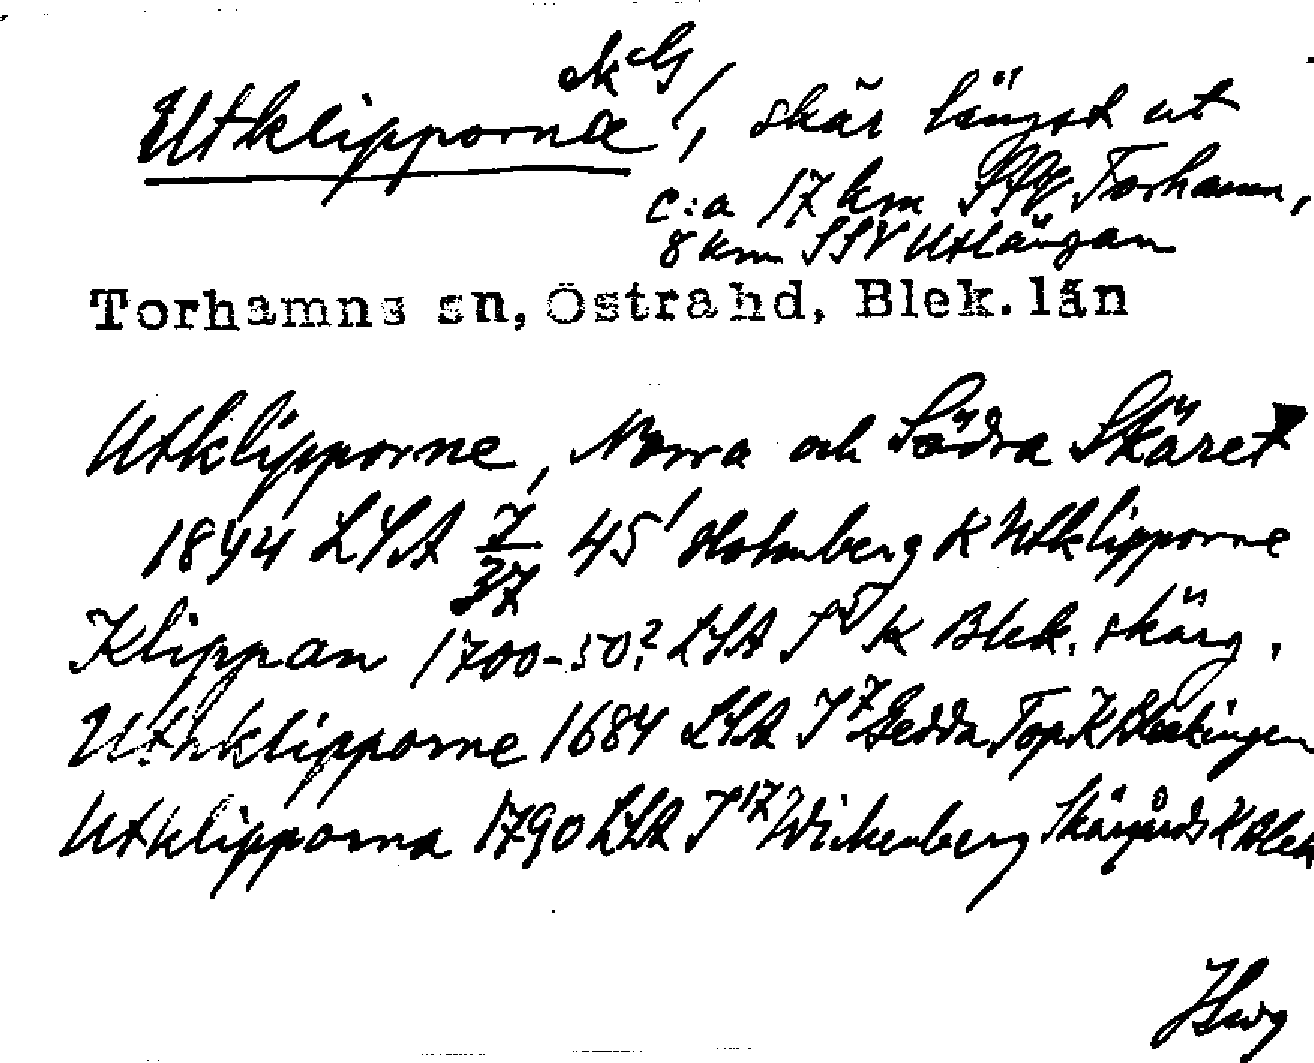 ekG
Utklipporna, skär längst ut
c:a 17 km SSV Torhamn,
8 km SSV Utlängan
Torhamns sn, Östra hd, Blek. län
Utklipporne, Norra och Södra Skäret
1844 LSA 7/37 45 Holmberg K Utklipporne
Klippan 1700-50? LSA I 5 K Blek. skärg.
Uthklipporne 1684 LSA I 7 Gedda Top. K Bleekingen
Utklipporna 1790 LSA I 17 Wickenberg Skärgårds K Blek